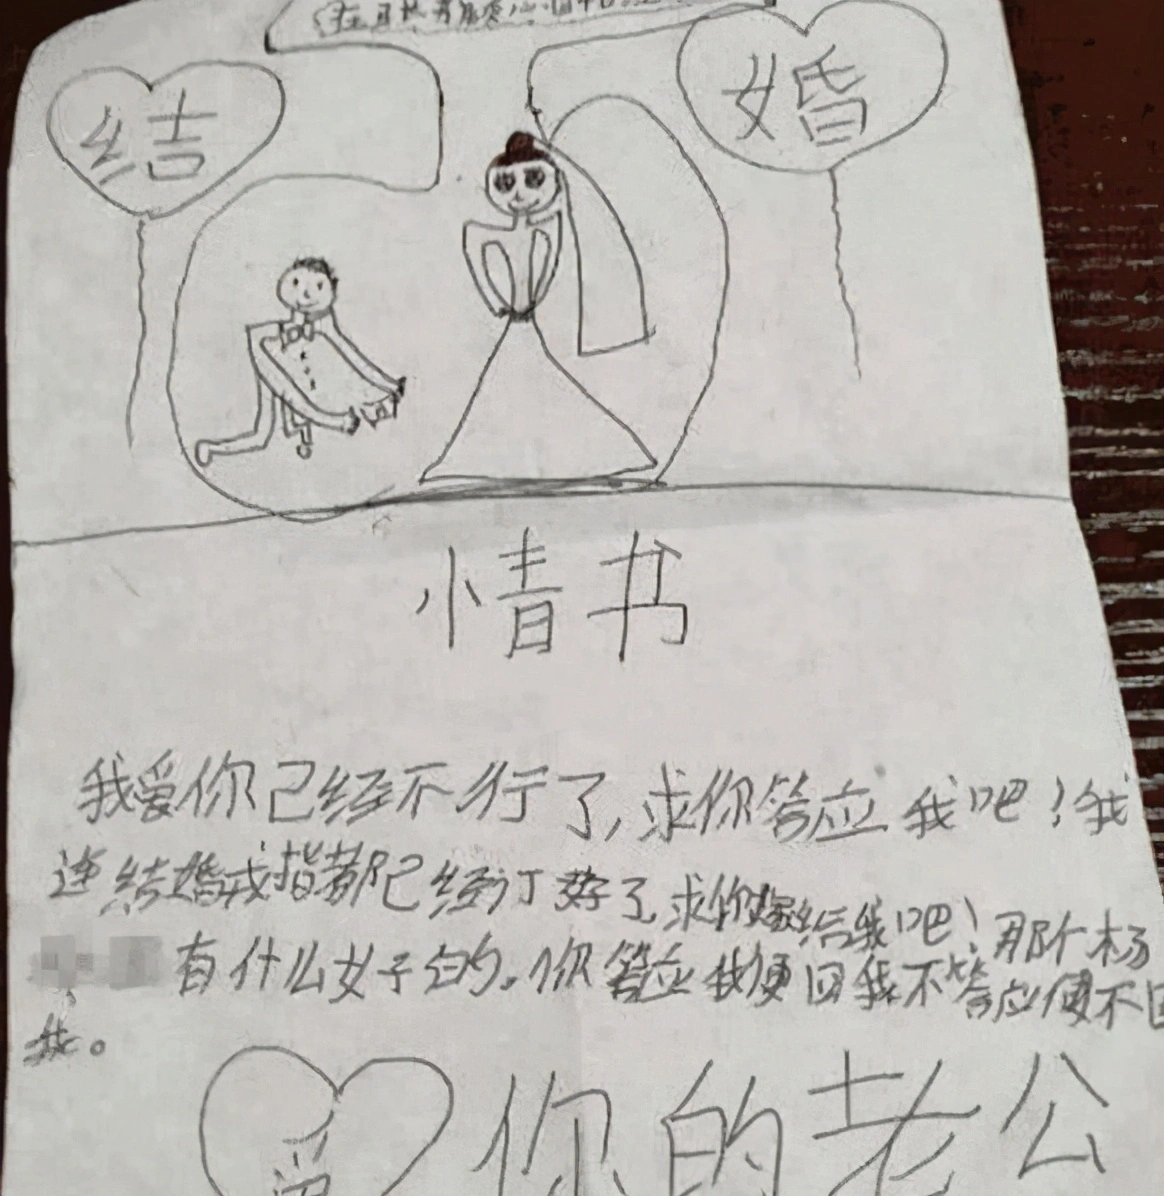 结 婚
小情书
我爱你己经不行了,求你答应我吧!我
连结婚戒指都己经订好了,求你嫁给我吧!那个杨
有什么好的。你答应我便回我不答应便不回
我。
爱你的老公